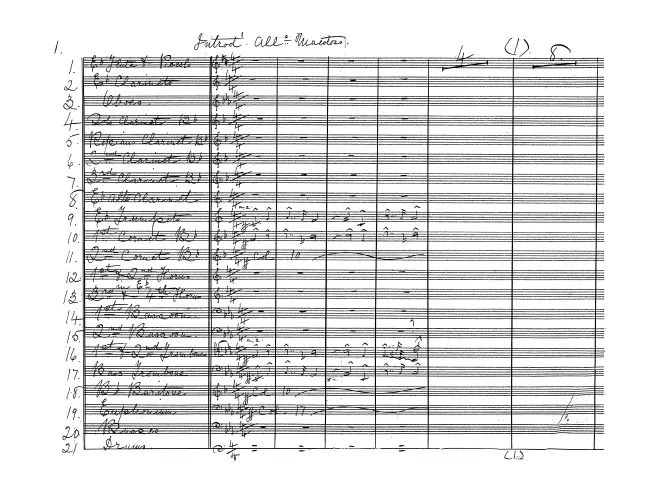 1. Introd. Allº Maestoso. 4 (1) 8
1. Eb Flute & Piccolo
2. Eb Clarinets
3. Oboes.
4. Solo Clarinets Bb
5. Repiano Clarinet Bb
6. 2nd Clarinets Bb
7. 3rd Clarinets Bb
8. Eb Alto Clarinet
9. Eb Trumpets
10. 1st Cornet Bb
11. 2nd Cornet Bb Col. 10
12. 1st & 2nd Horns
13. 3rd & 4th Horns
14. 1st Bassoon
15. 2nd Bassoon
16. 1st & 2nd Trombone
17. Bass Trombone
18. Bb Baritone Col. 10
19. Euphonium Col. 17
20. Basses
21 Drums.
(1)